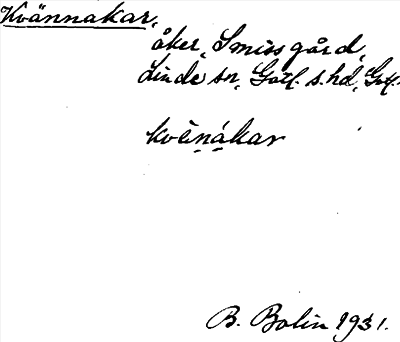 Kvännakar,
åker, Smiss gård,
Linde sn, Gotl. s. hd, Gotl.
kvęnákar
B. Bolin 1931.